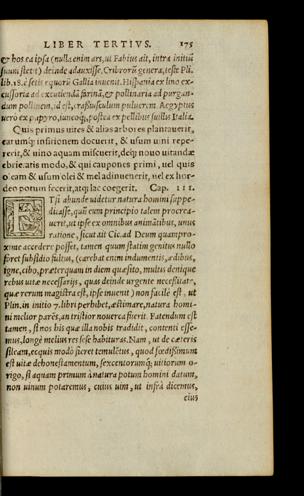 LIBER TERTIVS. 175
& hos ea ipsa (nulla enim ars, ut Fabius ait, intra initiũ
suum stetit) deinde adauxisse. Cribrorũ genera, teste Pli.
lib. 18. è setis equorũ Gallia inuenit. Hispania ex lino ex-
cussoria ad excutiendã farinã, & pollinaria ad purgan-
dum pollinem, id est, crassiusculum puluerem. Aegyptus
uero ex papyro, iuncoq́;, postea ex pellibus suillis Italia.
Quis primus uites & alias arbores plantauerit,
earumq́; insitionem docuerit, & usum uini repe-
rerit, & uino aquam miscuerit, deq́; nouo uitandæ
ebrietatis modo, & qui caupones primi, uel quis
oleam & usum olei & mel adinuenerit, uel ex hor-
deo potum fecerit, atq́; lac coegerit. Cap. III.
ETsi abunde uidetur natura homini suppe-
ditasse, quũ eum principio talem procrea-
uerit, ut ipse ex omnibus animãtibus, unus
ratione, sicut ait Cic. ad Deum quàm pro-
xime accedere posset, tamen quum statim genitus nullo
foret subsidio fultus, (carebat enim indumentis, ædibus,
igne, cibo, præterquam in diem quæsito, multis denique
rebus uitæ necessarijs, quas deinde urgente necessitate,
quæ rerum magistra est, ipse inuenit) non facilè est, ut
Plin. in initio 7. libri perhibet, æstimare, natura homi-
ni melior parẽs, an tristior nouerca fuerit. Fatendum est
tamen, si nos his quæ illa nobis tradidit, contenti esse-
mus, longè melius res sese habituras. Nam, ut de cæteris
sileam, ecquis modò sieret temulẽtus, quod fœdissimum
est uitæ dehonestamentum, sexcentorumq́; uitiorum o-
rigo, si aquam primum à natura potum homini datum,
non uinum potaremus, cuius uim, ut infrà dicemus,
eius